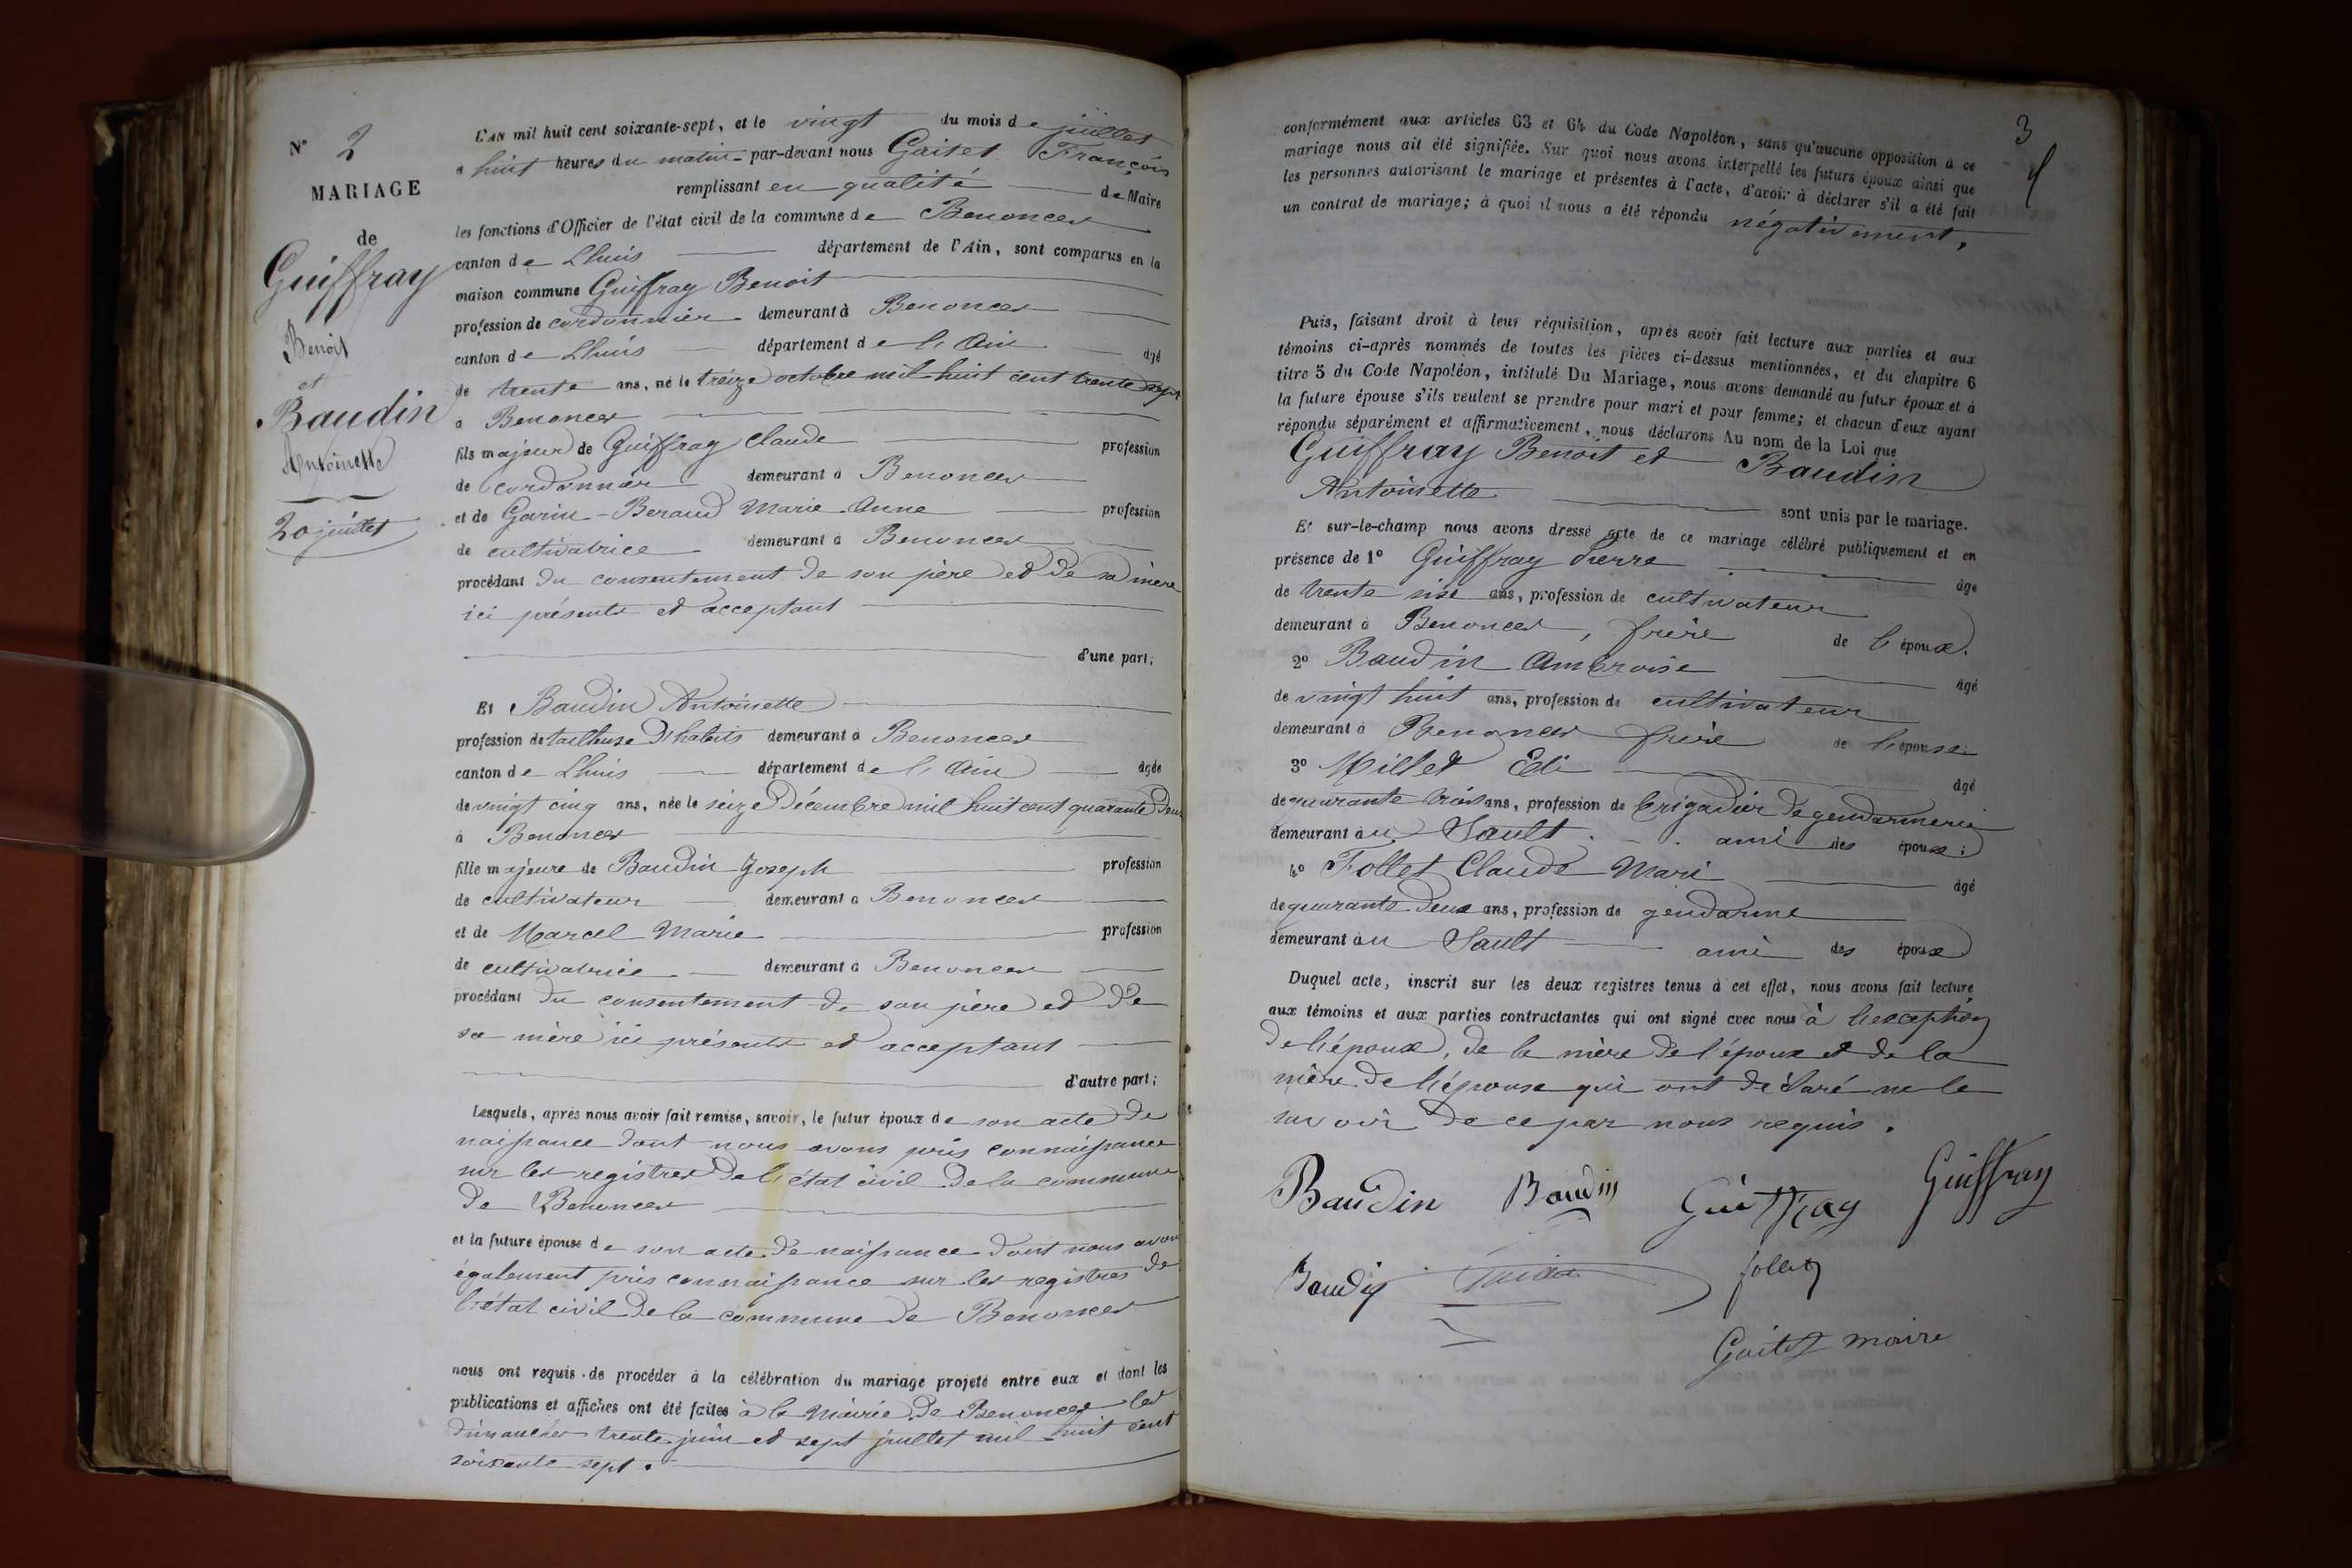 N° 2
MARIAGE
de
Guiffray
Benoit
et
Baudin
Antoinette
20 juillet
L'AN mil huit cent soixante-sept, et le vingt du mois de juillet
a huit heures du matin par-devant nous Gaitet François
remplissant en qualité de Maire
les fonctions d'Officier de l'état civil de la commune de Benonces
canton de Lhuis département de l'Ain, sont comparus en la
maison commune Guiffray Benoit
profession de cordonnier demeurant à Benonces
canton de Lhuis département de l'Ain âgé
de trente ans, né le treize octobre mil huit cent trente sept
à Benonces
fils majeur de Guiffray Claude profession
de cordonnier demeurant à Benonces
et de Garin-Beraud Marie Anne profession
de cultivatrice demeurant à Benonces
procédant du consentement de son père et de sa mère
ici présents et acceptant
d'une part;
Et Baudin Antoinette
profession de tailleuse d'habits demeurant à Benonces
canton de Lhuis département de l'Ain âgée
de vingt cinq ans, née le seize Décembre mil huit cent quarante deux
à Benonces
fille majeure de Baudin Joseph profession
de cultivateur demeurant à Benonces
et de Marcel Marie profession
de cultivatrice demeurant à Benonces
procédant du consentement de son père et de
sa mère ici présents et acceptant
d'autre part;
Lesquels, après nous avoir fait remise, savoir, le futur époux de son acte de
naissance dont nous avons pris connaissance
sur les registres de l'état civil de la commune
de Benonces
et la future épouse de son acte de naissance dont nous avons
également pris connaissance sur les registres de
l'état civil de la commune de Benonces
nous ont requis de procéder à la célébration du mariage projeté entre eux et dont les
publications et affiches ont été faites à la Mairie de Benonces les
dimanches trente juin et sept juillet mil huit cent
soixante sept.
3
conformément aux articles 63 et 64 du Code Napoléon, sans qu'aucune opposition à ce
mariage nous ait été signifiée. Sur quoi nous avons interpellé les futurs époux ainsi que
les personnes autorisant le mariage et présentes à l'acte, d'avoir à déclarer s'il a été fait
un contrat de mariage; à quoi il nous a été répondu négativement,
Puis, faisant droit à leur réquisition, après avoir fait lecture aux parties et aux
témoins ci-après nommés de toutes les pièces ci-dessus mentionnées, et du chapitre 6
titre 5 du Code Napoléon, intitulé Du Mariage, nous avons demandé au futur époux et à
la future épouse s'ils veulent se prendre pour mari et pour femme; et chacun d'eux ayant
répondu séparément et affirmativement, nous déclarons Au nom de la Loi que
Guiffray Benoit et Baudin
Antoinette
sont unis par le mariage.
Et sur-le-champ nous avons dressé acte de ce mariage célébré publiquement et en
présence de 1° Guiffray Pierre âgé
de trente six ans, profession de cultivateur
demeurant à Benonces, frère de l'époux.
2° Baudin Ambroise âgé
de vingt huit ans, profession de cultivateur
demeurant à Benonces frère de l'épouse
3° Millet Eli âgé
de quarante trois ans, profession de brigadier de gendarmerie
demeurant au Sault ami des époux;
4° Follet Claude Mari âgé
de quarante deux ans, profession de gendarme
demeurant au Sault ami des époux
Duquel acte, inscrit sur les deux registres tenus à cet effet, nous avons fait lecture
aux témoins et aux parties contractantes qui ont signé avec nous à l'exception
de l'époux, de la mère de l'époux et de la
mère de l'épouse qui ont déclaré ne le
savoir de ce par nous requis.
Baudin Baudin Guiffray Guiffray
Baudin follet
Gaitet maire